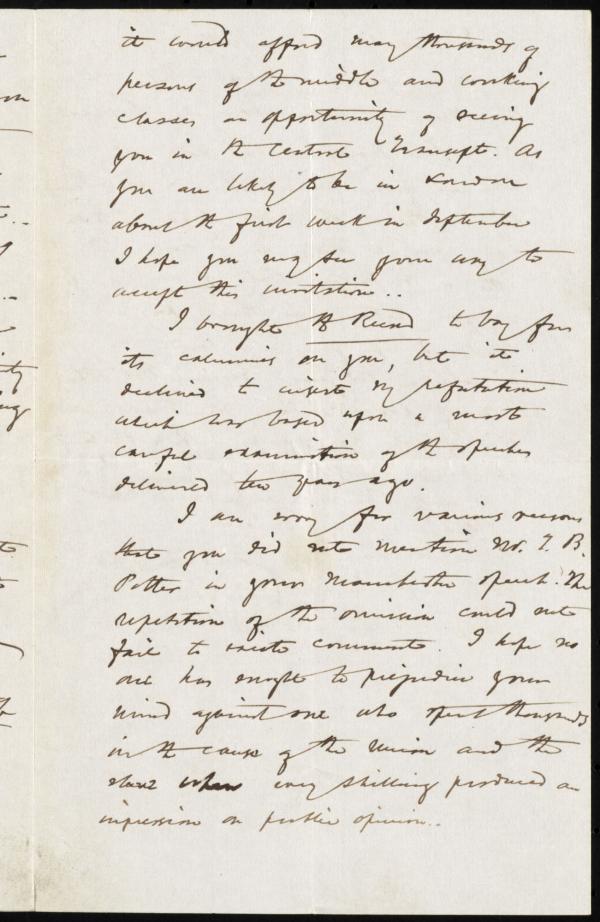 it would afford many thousands of
persons of the middle and working
classes an opportunity of seeing
you in the Central Transept. As
you are likely to be in London
about the first week in September
I hope you may see your way to
accept this invitation..
I brought The Record to bay for
its calumnies on you, but it
declined to insert my refutation
which was based upon a most
careful examination of the speeches
delivered ten years ago.
I am sorry for various reasons
that you did not mention Mr. T. B.
Potter in your Manchester speech. The
repetition of the omission could not
fail to excite comment. I hope no
one has sought to prejudice your
mind against one who spent thousands
in the cause of the Union and the
slave when every shilling produced an
impression on public opinion..